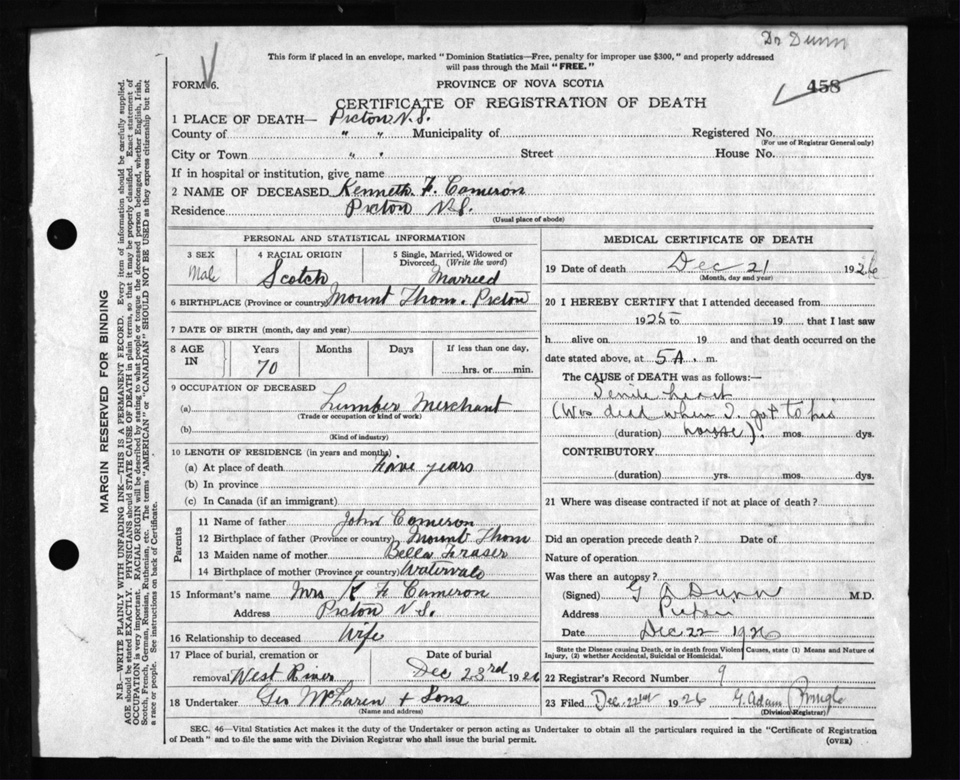 Dr Dunn
This form if placed in an envelope, marked "Dominion Statistics—Free, penalty for improper use $300," and properly addressed
will pass through the Mail "FREE."
FORM 6.
PROVINCE OF NOVA SCOTIA
458
CERTIFICATE OF REGISTRATION OF DEATH
1 PLACE OF DEATH— Pictou N.S.
County of " " Municipality of Registered No.
(For use of Registrar General only)
City or Town " " Street House No.
If in hospital or institution, give name
2 NAME OF DECEASED Kenneth F. Cameron
Residence Pictou N.S.
(Usual place of abode)
PERSONAL AND STATISTICAL INFORMATION
3 SEX 4 RACIAL ORIGIN 5 Single, Married, Widowed or
Divorced. (Write the word)
Male Scotch Married
6 BIRTHPLACE (Province or country) Mount Thom. Pictou
7 DATE OF BIRTH (month, day and year)
8 AGE IN Years Months Days If less than one day,
70 hrs. or min.
9 OCCUPATION OF DECEASED
(a) Lumber Merchant
(Trade or occupation or kind of work)
(b)
(Kind of industry)
10 LENGTH OF RESIDENCE (in years and months)
(a) At place of death years
(b) In province
(c) In Canada (if an immigrant)
Parents
11 Name of father John Cameron
12 Birthplace of father (Province or country) Mount Thom
13 Maiden name of mother Bella Fraser
14 Birthplace of mother (Province or country) Watervale
15 Informant's name Mrs K F Cameron
Address Pictou N.S.
16 Relationship to deceased Wife
17 Place of burial, cremation or Date of burial
removal West River Dec 23rd 1926
18 Undertaker Geo McLaren + Sons
(Name and address)
MEDICAL CERTIFICATE OF DEATH
19 Date of death Dec 21 1926
(Month, day and year)
20 I HEREBY CERTIFY that I attended deceased from
1925 to 19 that I last saw
h alive on 19 and that death occurred on the
date stated above, at 5 A. m.
The CAUSE of DEATH was as follows:—
Senile heart
(Was dead when I got to his
(duration) house). mos. dys.
CONTRIBUTORY
(duration) yrs. mos. dys.
21 Where was disease contracted if not at place of death?
Did an operation precede death? Date of
Nature of operation
Was there an autopsy?
(Signed) G A Dunn M.D.
Address Pictou
Date Dec 22 1926
State the Disease causing Death, or in death from Violent Causes, state (1) Means and Nature of
Injury, (2) whether Accidental, Suicidal or Homicidal.
22 Registrar's Record Number 9
23 Filed Dec. 22nd 1926 G. Adam Pringle
(Division Registrar)
SEC. 46—Vital Statistics Act makes it the duty of the Undertaker or person acting as Undertaker to obtain all the particulars required in the "Certificate of Registration
of Death" and to file the same with the Division Registrar who shall issue the burial permit.
(OVER)
MARGIN RESERVED FOR BINDING
N.B.—WRITE PLAINLY WITH UNFADING INK—THIS IS A PERMANENT RECORD. Every item of information should be carefully supplied.
AGE should be stated EXACTLY. PHYSICIANS should STATE CAUSE OF DEATH in plain terms, so that it may be properly classified. Exact statement of
OCCUPATION is very important. RACIAL ORIGIN will be described by stating to what people or tongue the deceased person belonged, whether English, Irish,
Scotch, French, German, Russian, Ruthenian, etc. The terms "AMERICAN" or "CANADIAN" SHOULD NOT BE USED as they express citizenship but not
a race or people. See instructions on back of Certificate.